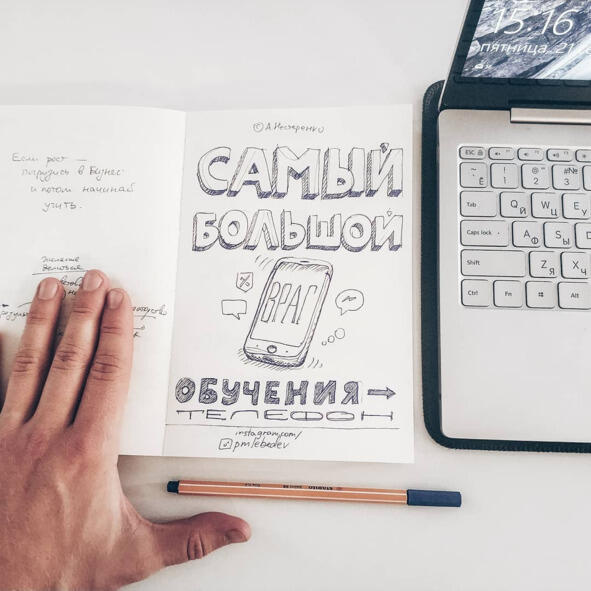 15:16
пятница, 21
© А.Нестеренко
Если рост —
погрузись в Бизнес
и потом начинай
учить.
САМЫЙ
БОЛЬШОЙ
ВРАГ
ОБУЧЕНИЯ →
ТЕЛЕФОН
instagram.com/
pmlebedev
ESC
~ Ё
! 1
@ 2
#№ 3
Tab
Q Й
W Ц
E У
Caps lock
A Ф
S Ы
D
Shift
Z Я
X Ч
Ctrl
Fn
Alt
STABILO